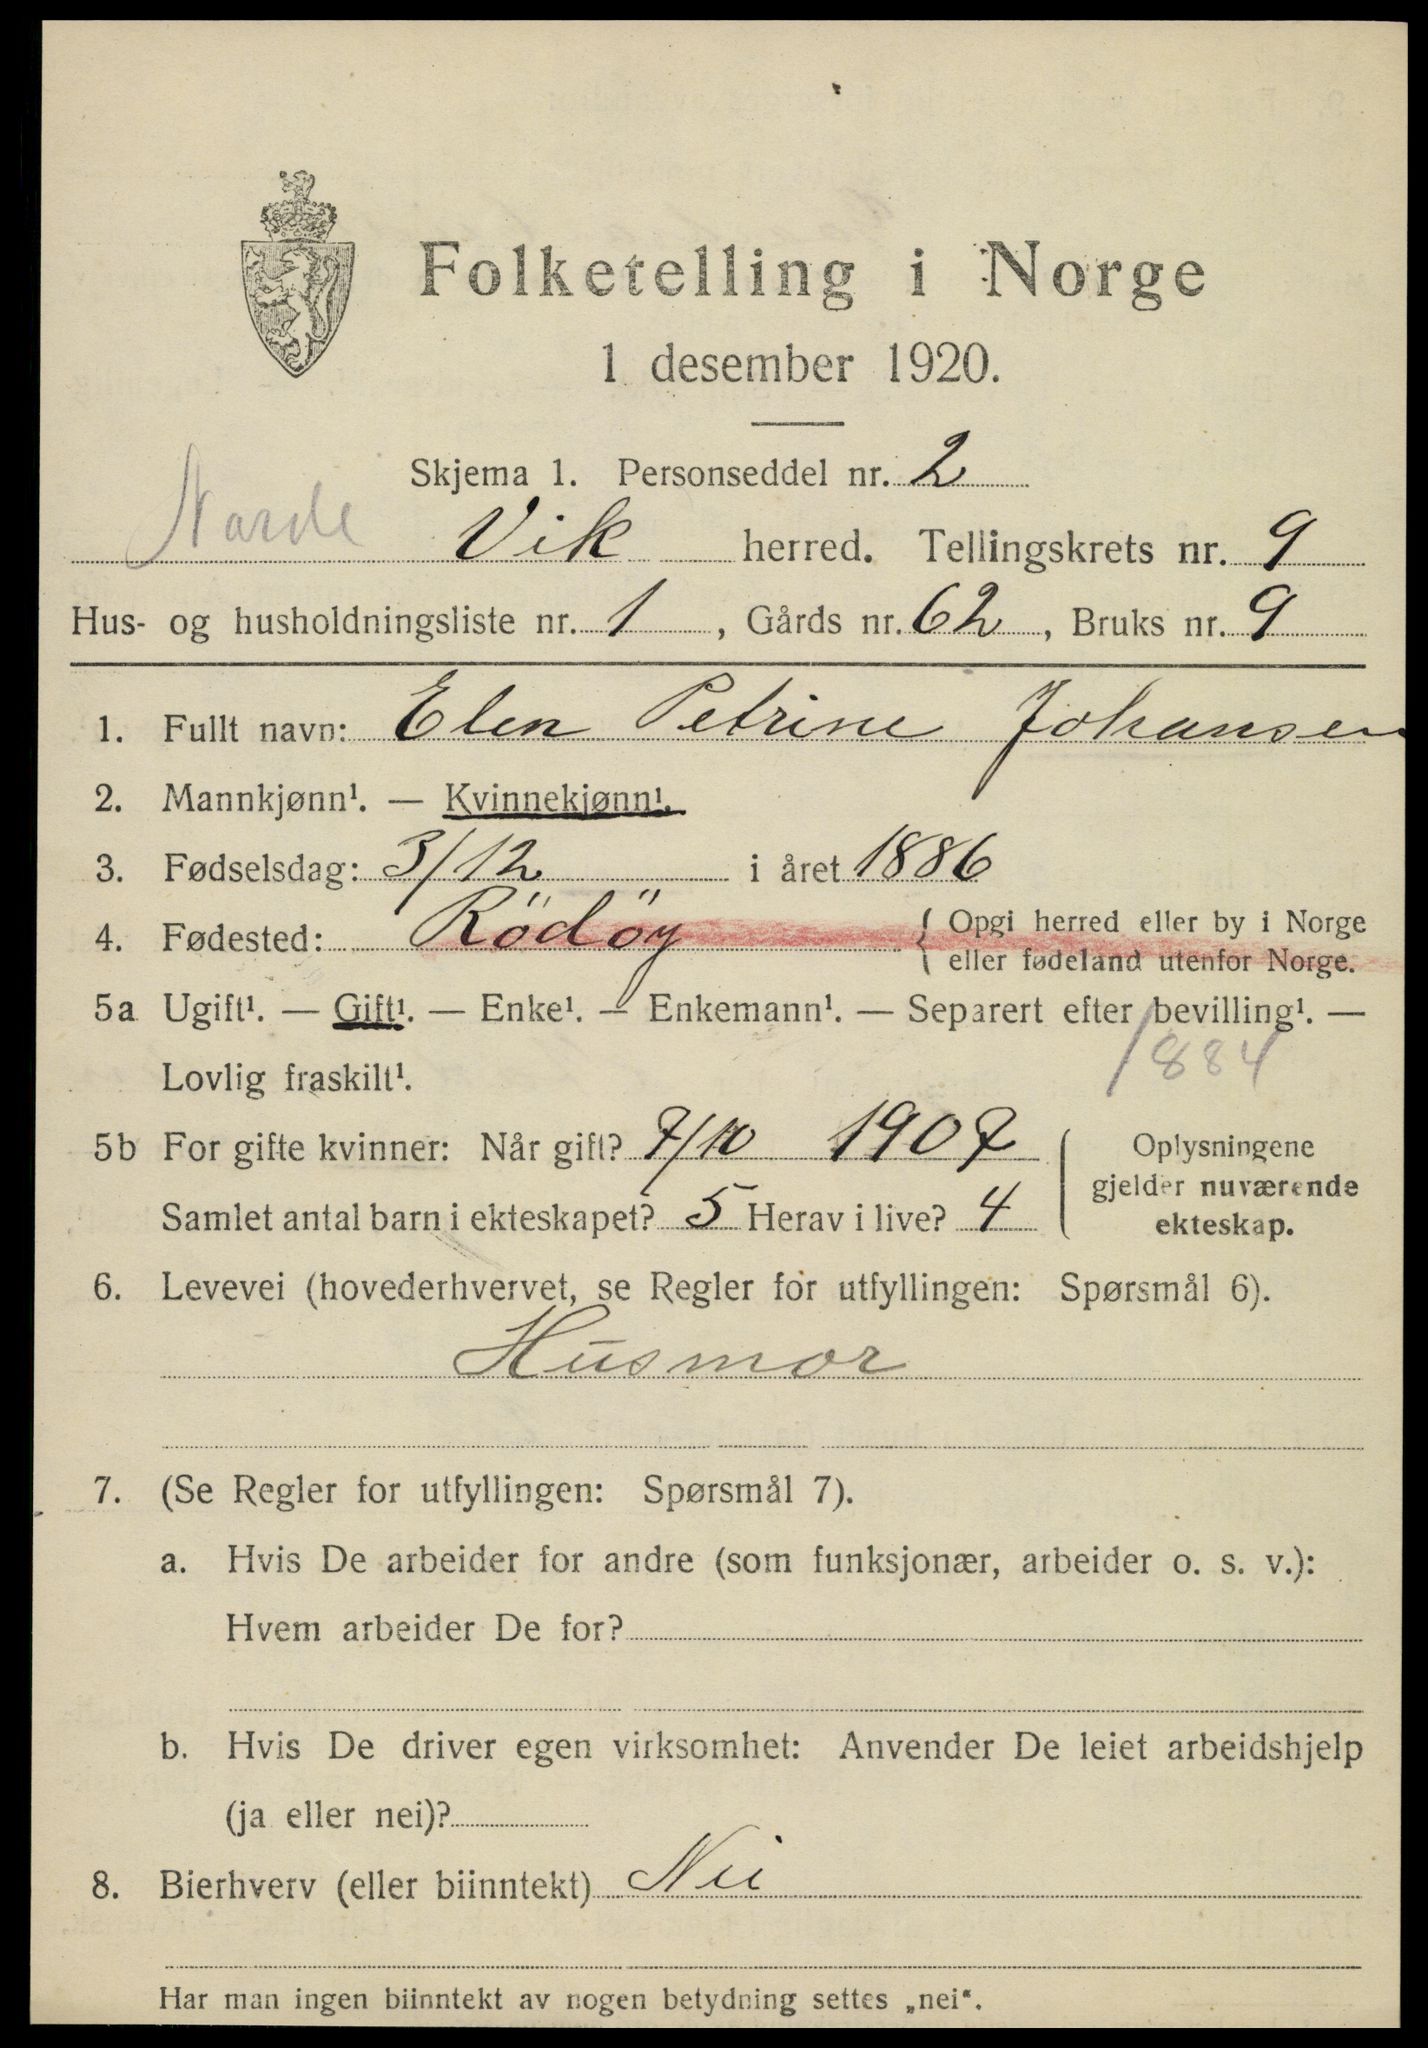 Folketelling i Norge
1 desember 1920.
Skjema 1. Personseddel nr. 2
Vik herred. Tellingskrets nr. 9
Hus- og husholdningsliste nr. 1, Gårds nr. 62, Bruks nr. 9
1. Fullt navn: Elen Petrine Johansen
2. Mannkjønn¹. — Kvinnekjønn¹.
3. Fødselsdag: 3/12 i året 1886
4. Fødested: Rödöy { Opgi herred eller by i Norge
eller fødeland utenfor Norge.
5a Ugift¹. — Gift¹. — Enke¹. — Enkemann¹. — Separert efter bevilling¹. —
Lovlig fraskilt¹. 1884
5b For gifte kvinner: Når gift? 7/10 1907
Samlet antal barn i ekteskapet? 5 Herav i live? 4
Oplysningene
gjelder nuværende
ekteskap.
6. Levevei (hovederhvervet, se Regler for utfyllingen: Spørsmål 6).
Husmor
7. (Se Regler for utfyllingen: Spørsmål 7).
a. Hvis De arbeider for andre (som funksjonær, arbeider o. s. v.):
Hvem arbeider De for?
b. Hvis De driver egen virksomhet: Anvender De leiet arbeidshjelp
(ja eller nei)?
8. Bierhverv (eller biinntekt) Nei
Har man ingen biinntekt av nogen betydning settes „nei“.